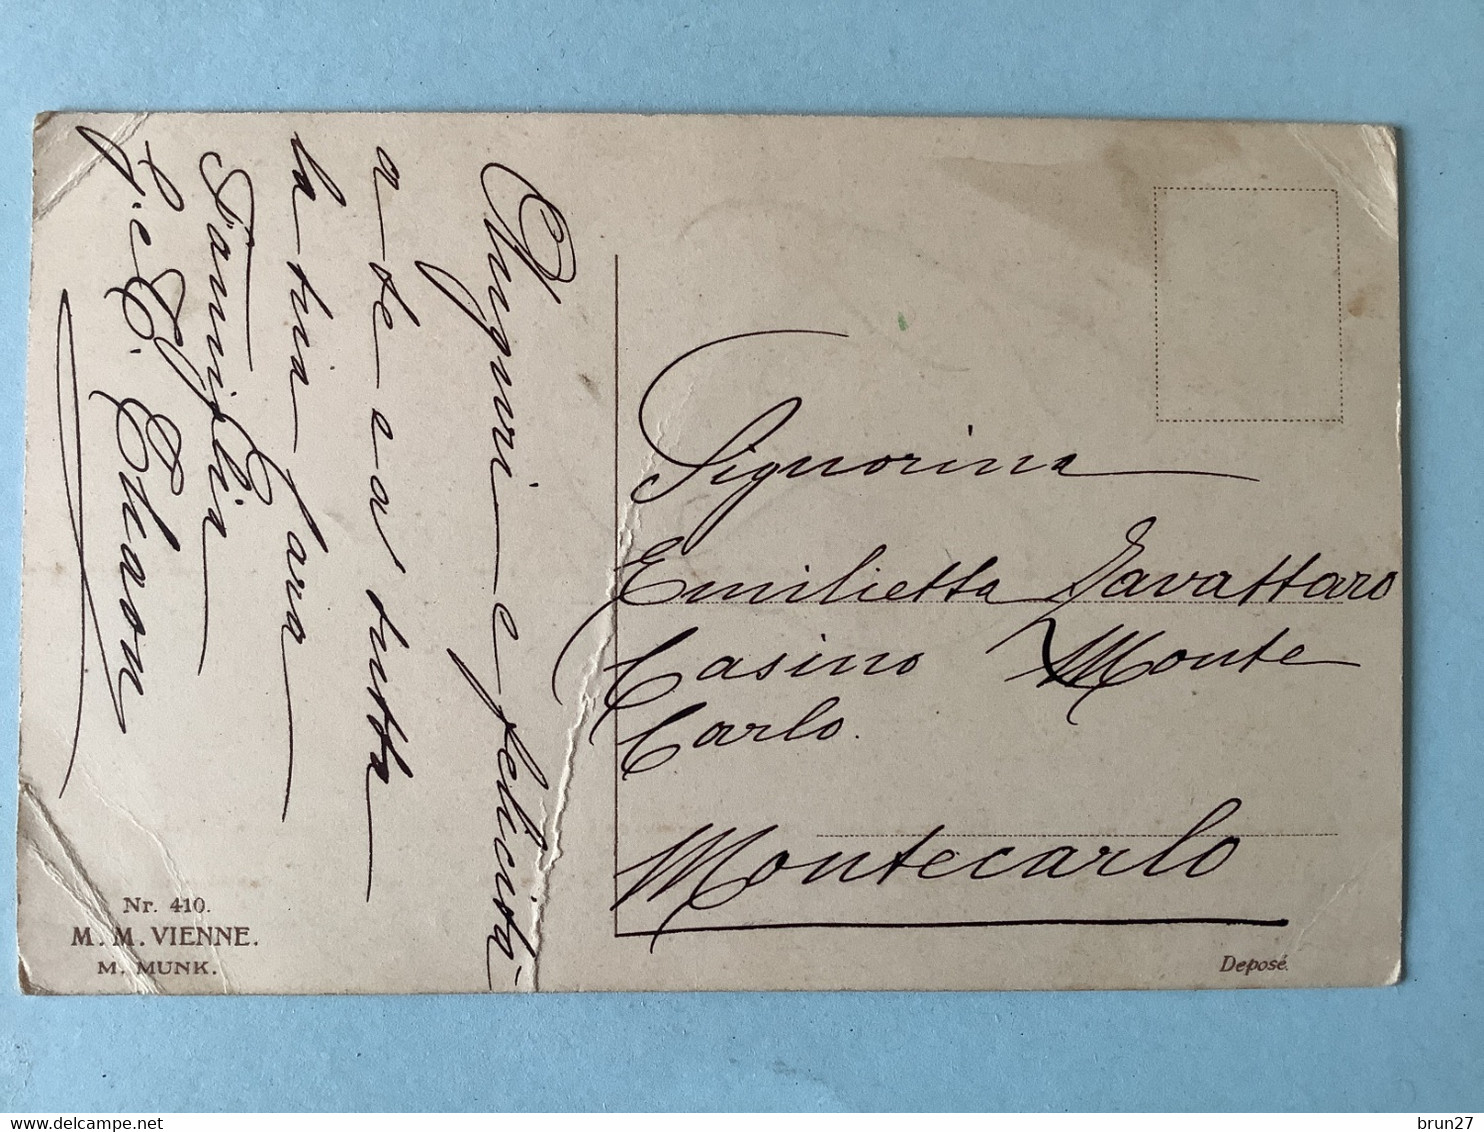 Auguri e felicità
a te e a tutta
la tua Cara
Famiglia
G. e C. Eharon
Signorina
Emilietta Gavattaro
Casino Monte
Carlo.
Montecarlo
Nr. 410.
M. M. VIENNE.
M. MUNK.
Deposé.
brun27